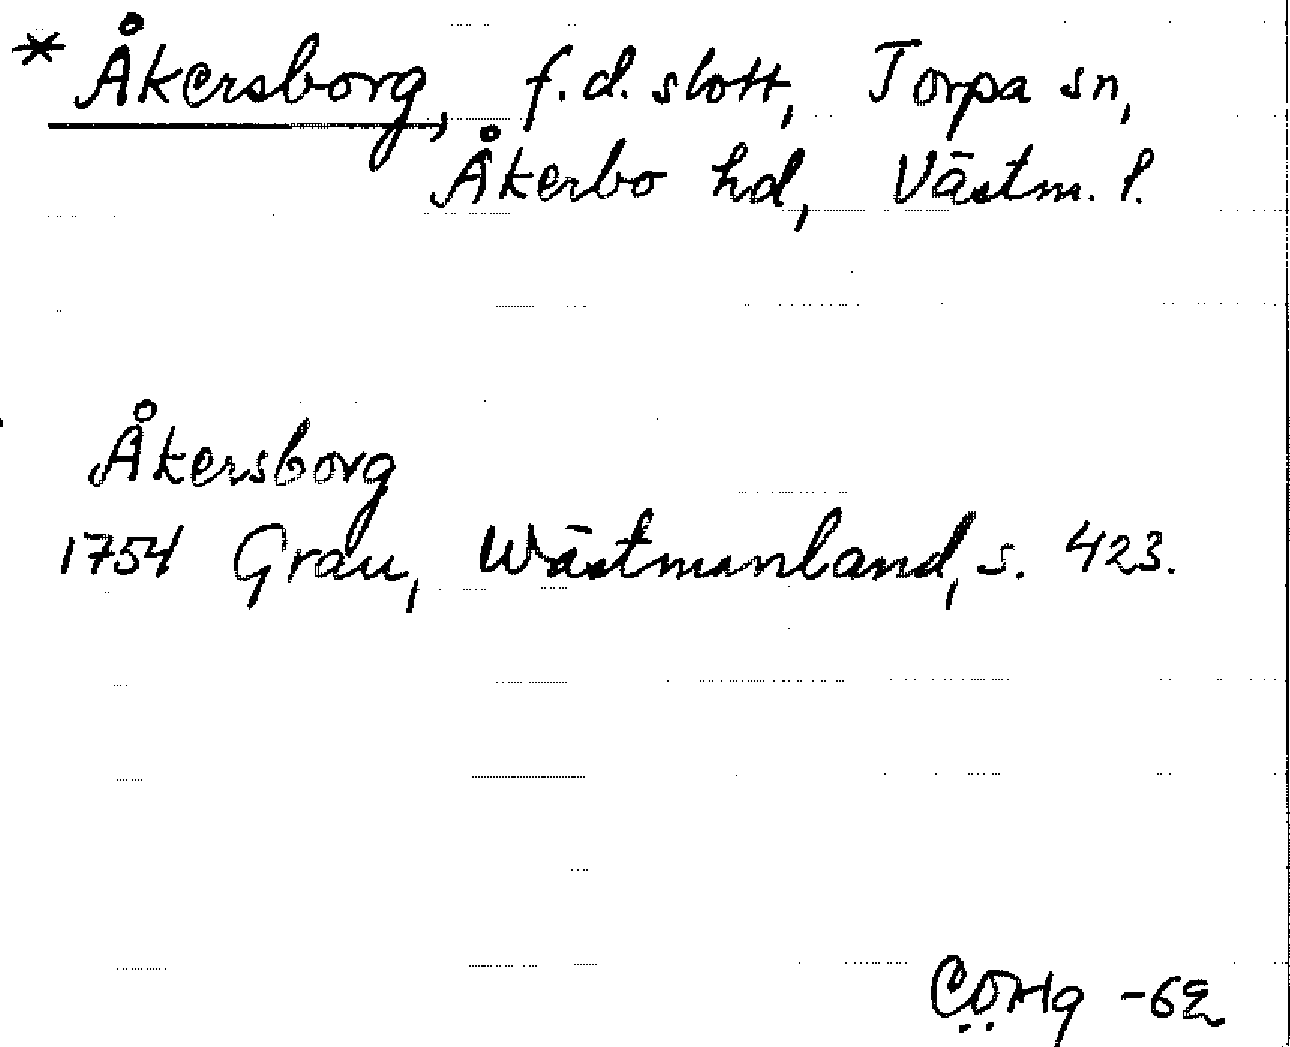 * Åkersborg, f.d. slott, Torpa sn,
Åkerbo hd, Västm. l.
Åkersborg
1754 Grau, Wästmanland, s. 423.
-62